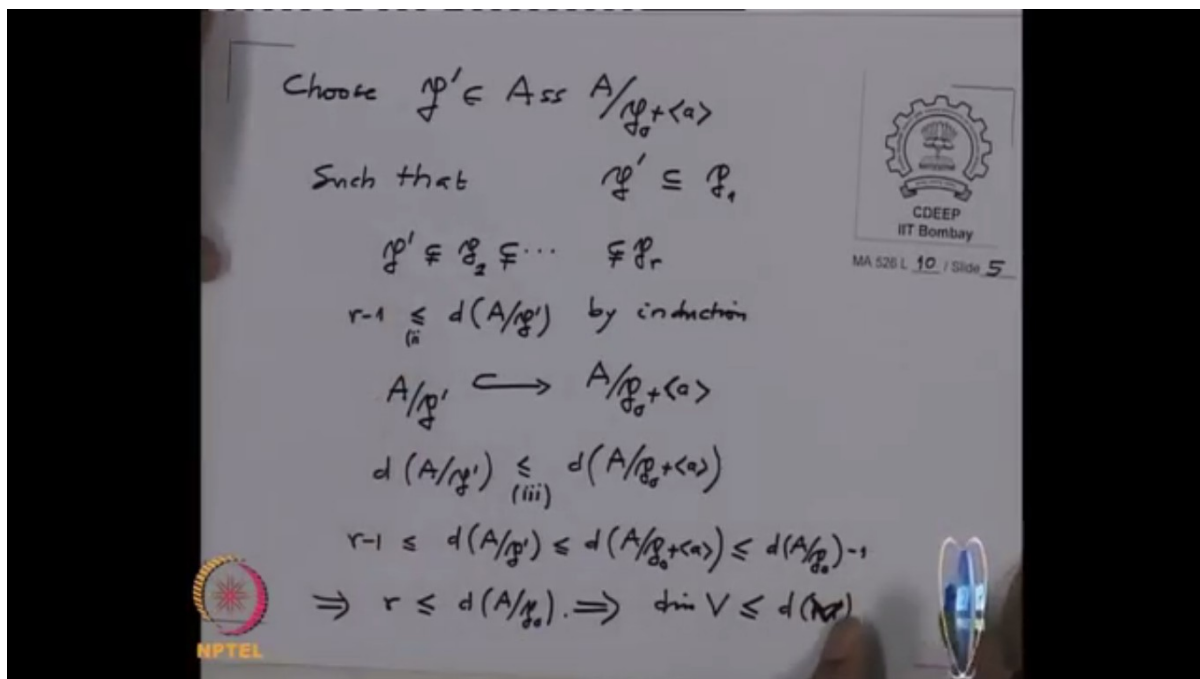 Choose 𝔭' ∈ Ass A/𝔭₀+<a>
Such that 𝔭' ⊆ 𝔭₁
𝔭' ⊊ 𝔭₂ ⊊ ⋯ ⊊ 𝔭r
r-1 ≤ d(A/𝔭') by induction
(ii
A/𝔭' ↪ A/𝔭₀+<a>
d(A/𝔭') ≤ d(A/𝔭₀+<a>)
(iii)
r-1 ≤ d(A/𝔭') ≤ d(A/𝔭₀+<a>) ≤ d(A/𝔭₀)-1
⇒ r ≤ d(A/𝔭₀). ⇒ dim V ≤ d( )
CDEEP
IIT Bombay
MA 526 L 10 / Slide 5
NPTEL